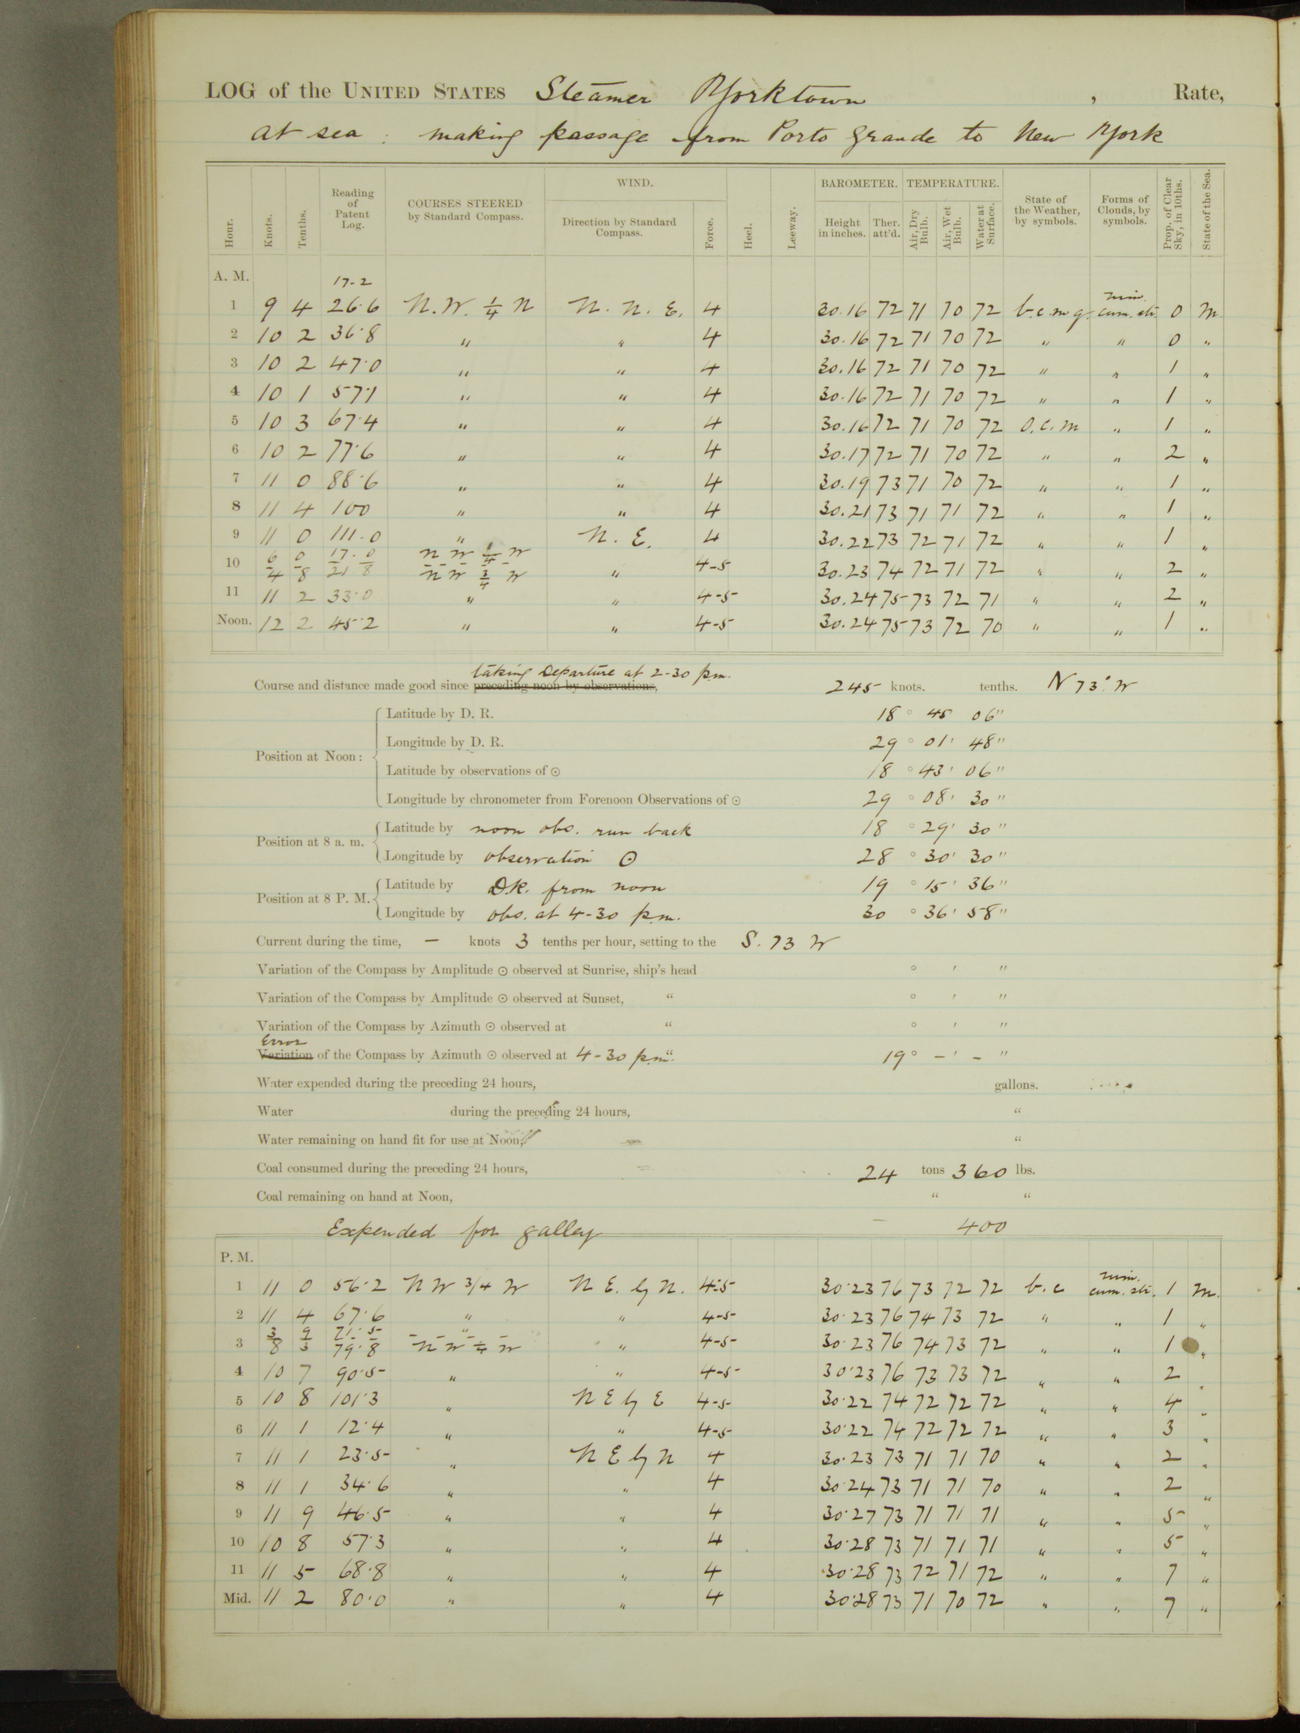 LOG of the UNITED STATES Steamer Yorktown , Rate,
at sea : making passage from Porto Grande to New York
Hour. Knots. Tenths. Reading of Patent Log. COURSES STEERED by Standard Compass. WIND. Direction by Standard Compass. Force. Heel. Leeway. BAROMETER. Height in inches. Ther. att'd. TEMPERATURE. Air, Dry Bulb. Air, Wet Bulb. Water at Surface. State of the Weather, by symbols. Forms of Clouds, by symbols. Prop. of Clear Sky, in 10ths. State of the Sea.
A. M. 17.2
1 9 4 26.6 N.W. 1/4 N N. N. E. 4 30.16 72 71 70 72 b.c.m.g. nim. cum. sti. 0 M
2 10 2 36.8 " " 4 30.16 72 71 70 72 " " 0 "
3 10 2 47.0 " " 4 30.16 72 71 70 72 " " 1 "
4 10 1 57.1 " " 4 30.16 72 71 70 72 " " 1 "
5 10 3 67.4 " " 4 30.16 72 71 70 72 O.C.M " 1 "
6 10 2 77.6 " " 4 30.17 72 71 70 72 " " 2 "
7 11 0 88.6 " " 4 30.19 73 71 70 72 " " 1 "
8 11 4 100 " " 4 30.21 73 71 71 72 " " 1 "
9 11 0 111.0 " N. E. 4 30.22 73 72 71 72 " " 1 "
6 0 17.0 N W 1/4 W
10 4 8 21.8 N W 3/4 W " 4-5 30.23 74 72 71 72 " " 2 "
11 11 2 33.0 " " 4-5 30.24 75 73 72 71 " " 2 "
Noon. 12 2 45.2 " " 4-5 30.24 75 73 72 70 " " 1 "
taking Departure at 2-30 p.m.
Course and distance made good since preceding noon by observations, 245 knots. tenths. N 73° W
Latitude by D. R. 18 ° 45 06 "
Longitude by D. R. 29 ° 01 ' 48 "
Position at Noon :
Latitude by observations of ☉ 18 ° 43 ' 06 "
Longitude by chronometer from Forenoon Observations of ☉ 29 ° 08 ' 30 "
Latitude by noon obs. run back 18 ° 29 ' 30 "
Position at 8 a. m.
Longitude by observation ☉ 28 ° 30 ' 30 "
Latitude by D.R. from noon 19 ° 15 ' 36 "
Position at 8 P. M.
Longitude by obs. at 4-30 p.m. 30 ° 36 ' 58 "
Current during the time, — knots 3 tenths per hour, setting to the S. 73 W
Variation of the Compass by Amplitude ☉ observed at Sunrise, ship's head ° ' "
Variation of the Compass by Amplitude ☉ observed at Sunset, " ° ' "
Variation of the Compass by Azimuth ☉ observed at " ° ' "
Error
Variation of the Compass by Azimuth ☉ observed at 4-30 p.m. " 19 ° — ' — "
Water expended during the preceding 24 hours, gallons.
Water during the preceding 24 hours, "
Water remaining on hand fit for use at Noon, "
Coal consumed during the preceding 24 hours, 24 tons 360 lbs.
Coal remaining on hand at Noon, " "
Expended for galley — 400
P. M.
1 11 0 56.2 N W 3/4 W N E. by N. 4-5 30.23 76 73 72 72 b.c nim. cum. sti. 1 M.
2 11 4 67.6 " " 4-5 30.23 76 74 73 72 " " 1 "
3 9 71.5 "
3 8 3 79.8 N W 1/4 W " 4-5 30.23 76 74 73 72 " " 1 "
4 10 7 90.5 " " 4-5 30.23 76 73 73 72 " " 2 "
5 10 8 101.3 " N E by E 4-5 30.22 74 72 72 72 " " 4 "
6 11 1 12.4 " " 4-5 30.22 74 72 72 72 " " 3 "
7 11 1 23.5 " N E by N 4 30.23 73 71 71 70 " " 2 "
8 11 1 34.6 " " 4 30.24 73 71 71 70 " " 2 "
9 11 9 46.5 " " 4 30.27 73 71 71 71 " " 5 "
10 10 8 57.3 " " 4 30.28 73 71 71 71 " " 5 "
11 11 5 68.8 " " 4 30.28 73 72 71 72 " " 7 "
Mid. 11 2 80.0 " " 4 30.28 73 71 70 72 " " 7 "